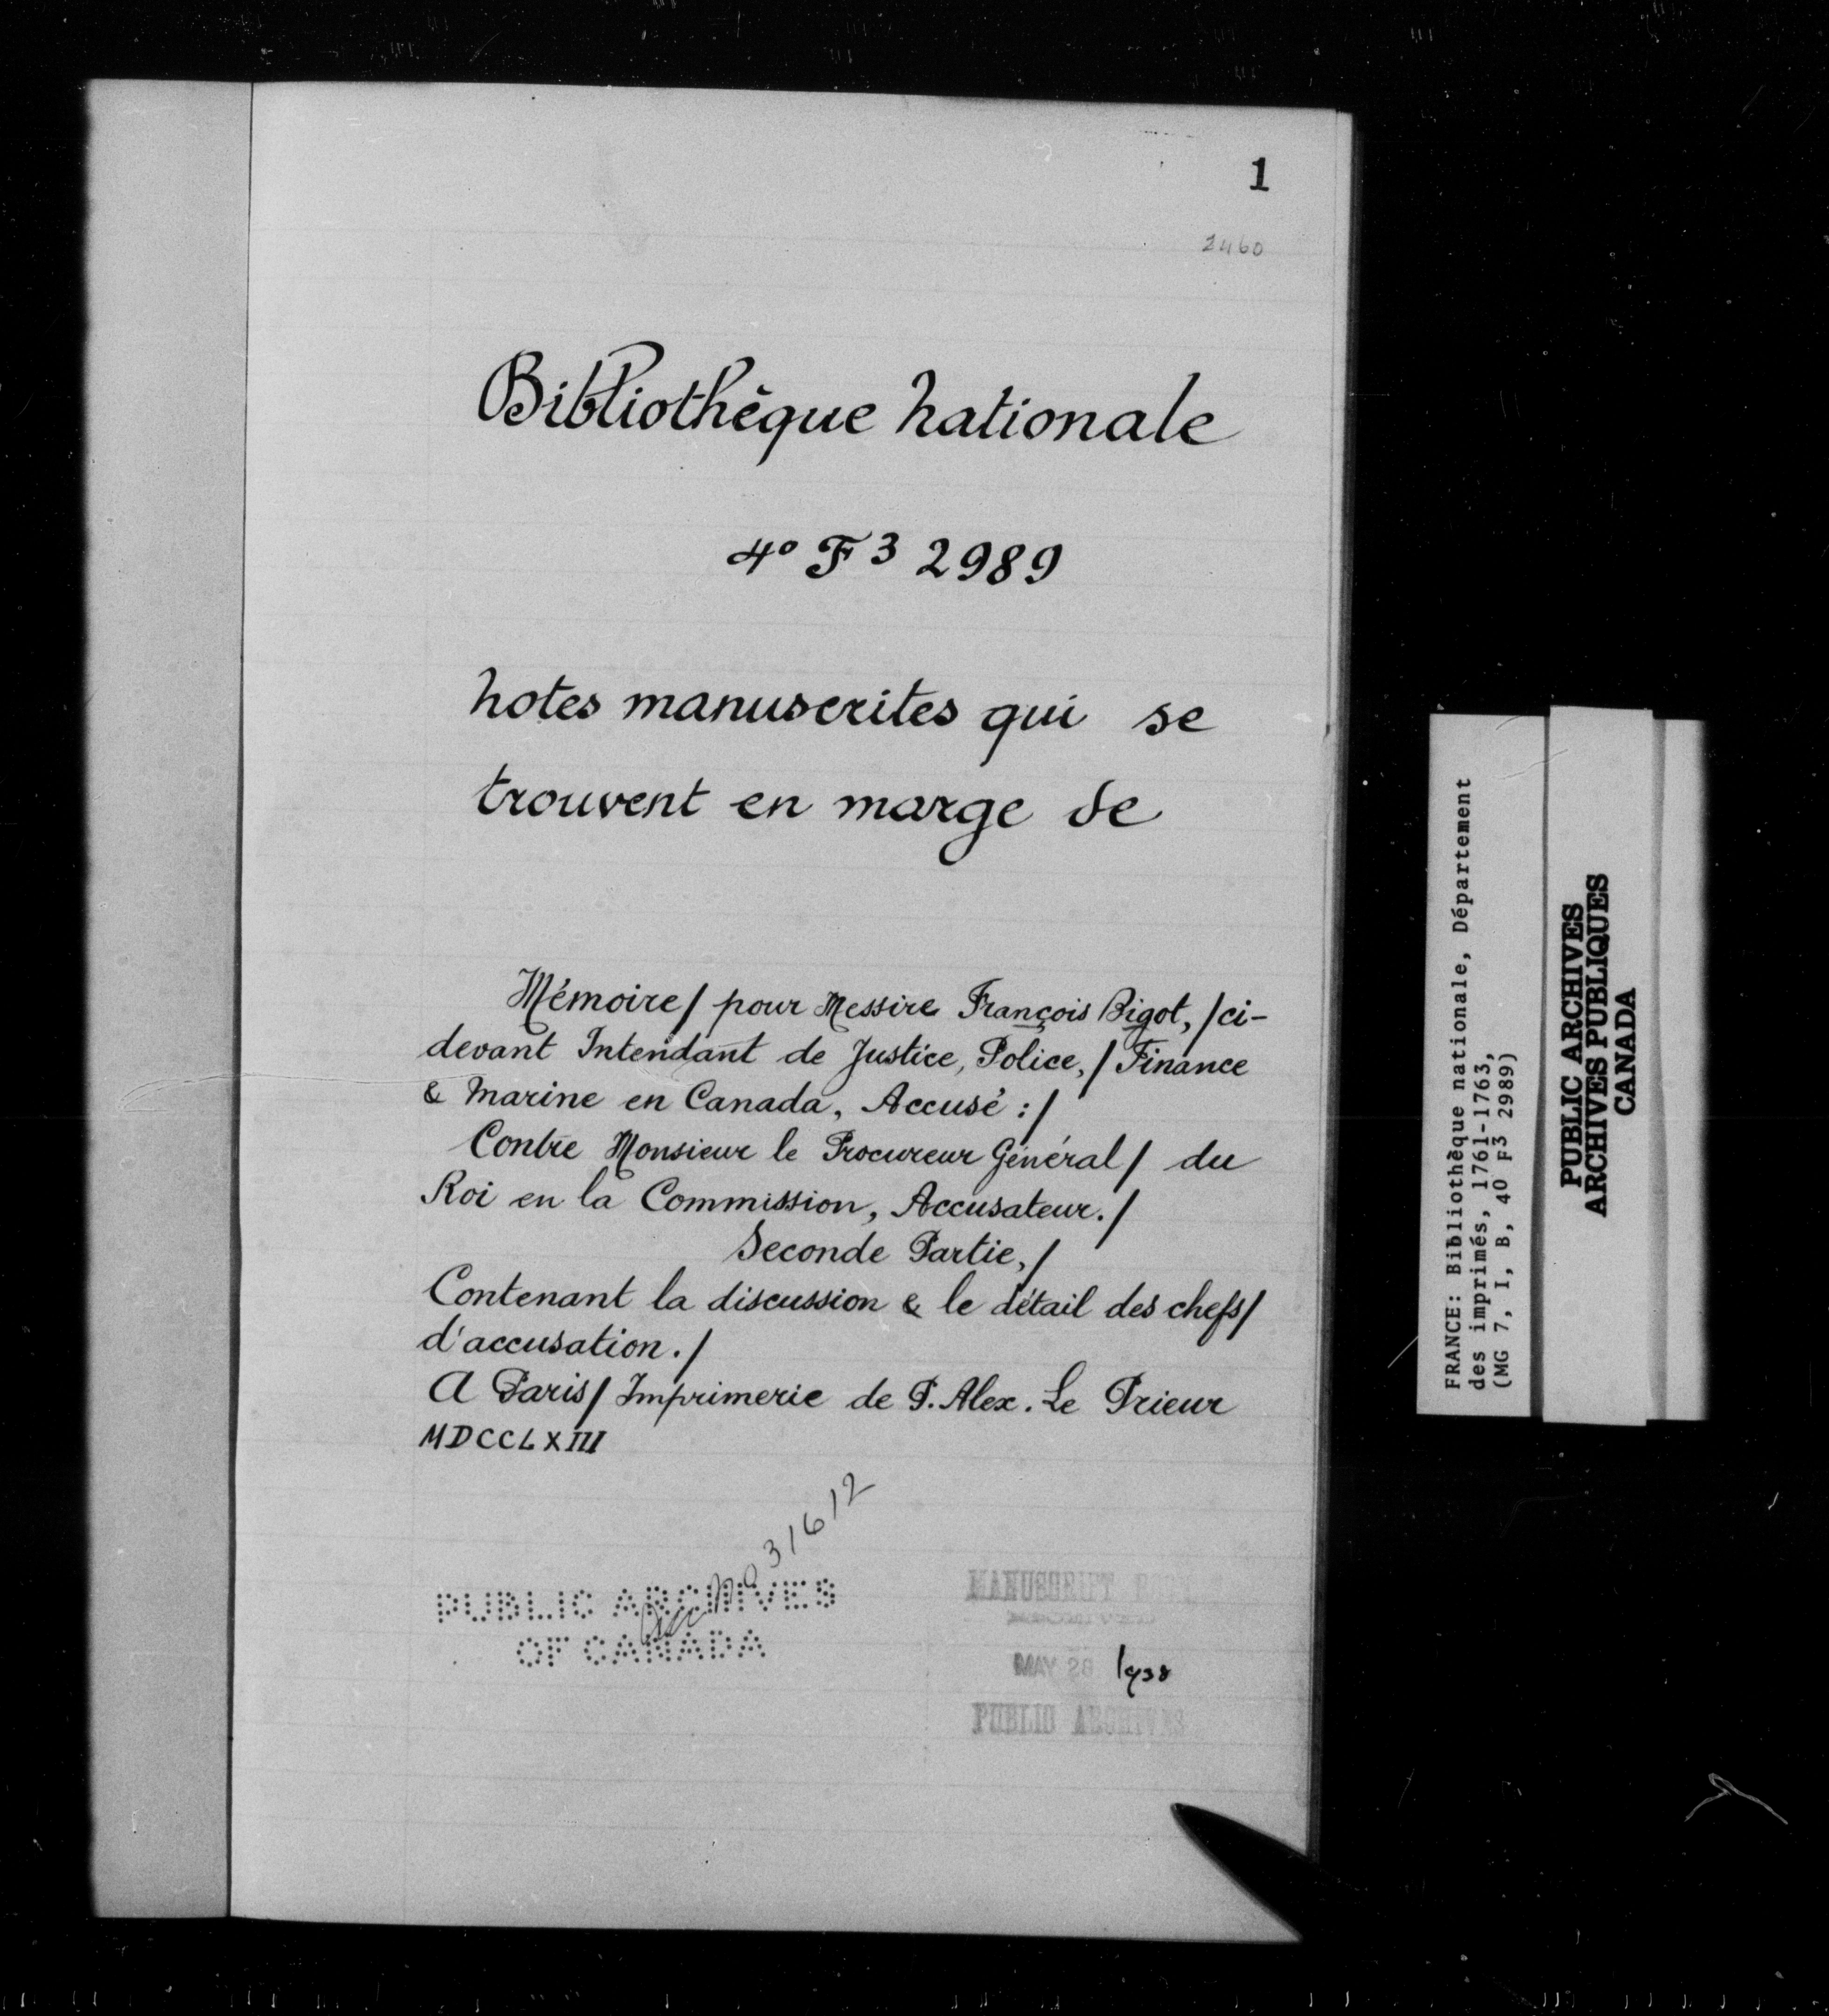 1
2460
Bibliothèque Nationale
4° F 3 2989
Notes manuscrites qui se
trouvent en marge de
Mémoire / pour Messire François Bigot, / ci-
devant Intendant de Justice, Police, / Finance
& Marine en Canada, Accusé : /
Contre Monsieur le Procureur Général / du
Roi en la Commission, Accusateur. /
Seconde Partie, /
Contenant la discussion & le détail des chefs /
d'accusation. /
A Paris / Imprimerie de P. Alex. Le Prieur
MDCCLXIII
31612
PUBLIC ARCHIVES
OF CANADA
MANUSCRIPT
MAY 28 1938
PUBLIC ARCHIVES
FRANCE: Bibliothèque nationale, Département
des imprimés, 1761-1763,
(MG 7, I, B, 40 F3 2989)
PUBLIC ARCHIVES
ARCHIVES PUBLIQUES
CANADA